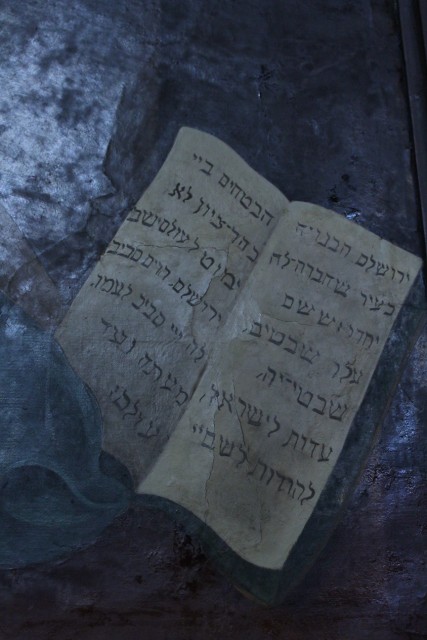 ירושלם הבנויה
כעיר שחברה לה
יחדו: ששם
עלו שבטים
שבטי-יה,
עדות לישראל,
להודות לשם יי
הבטחים ביי
כהר-ציון לא
ימוט לעולם ישב
ירושלם הרים סביב
לה ויי סביב לעמו,
מעתה ועד
עולם.